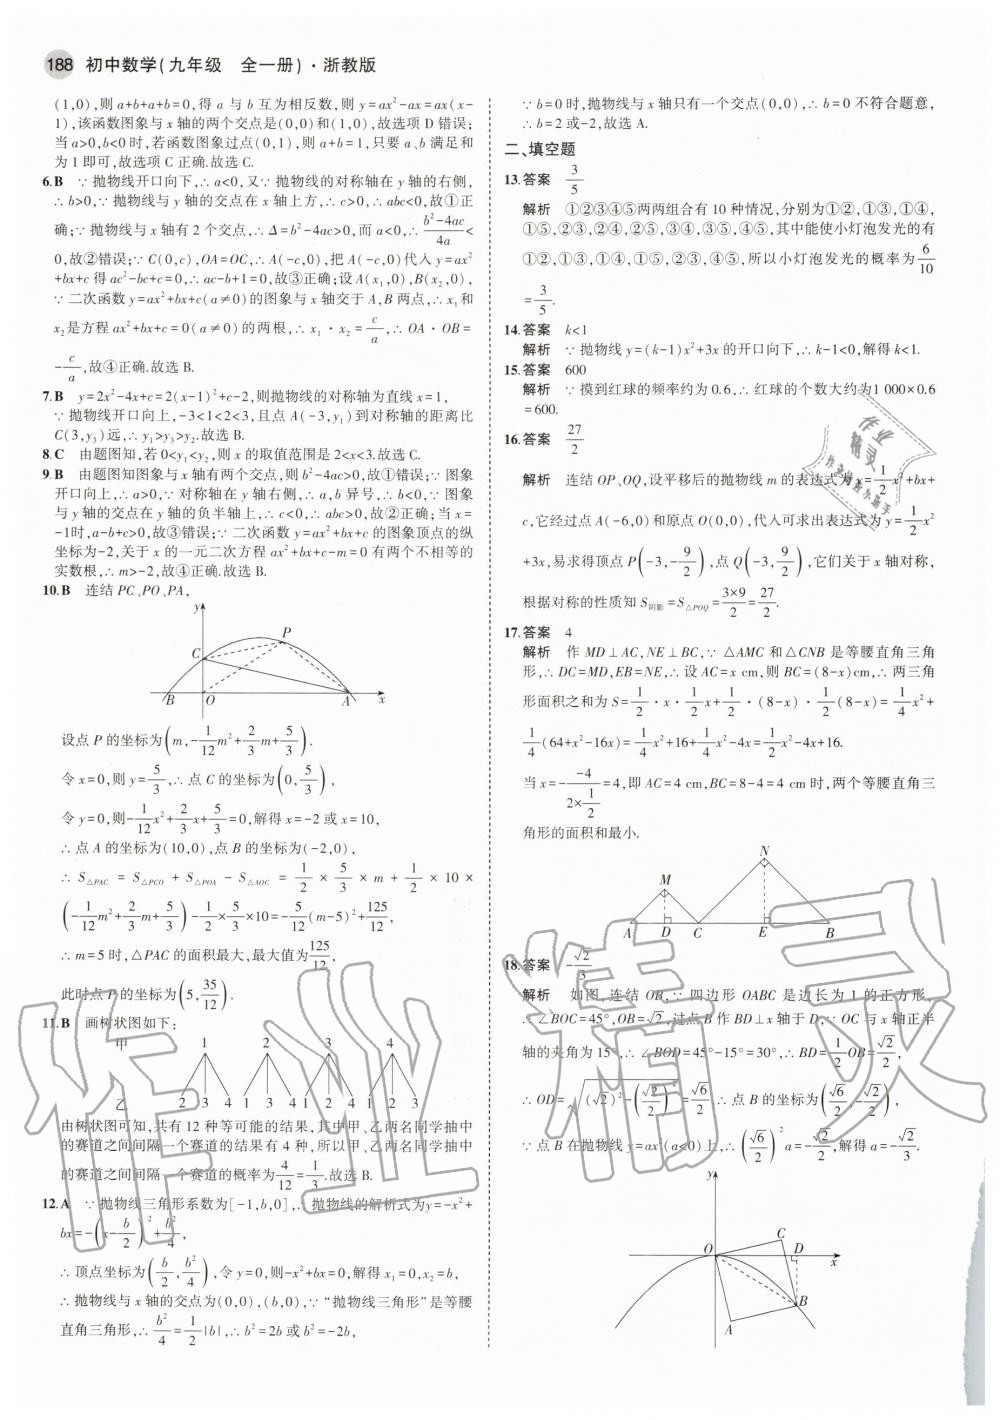 188 初中数学(九年级 全一册)·浙教版
(1,0),则a+b+a+b=0,得 a 与 b 互为相反数,则 y=ax²-ax=ax(x-
1),该函数图象与 x 轴的两个交点是(0,0)和(1,0),故选项 D 错误;
当 a>0,b<0 时,若函数图象过点(0,1),则 a+b=1,只要 a、b 满足和
为 1 即可,故选项 C 正确.故选 C.
6.B ∵ 抛物线开口向下,∴ a<0,又∵ 抛物线的对称轴在 y 轴的右侧,
∴ b>0,∵ 抛物线与 y 轴的交点在 x 轴上方,∴ c>0,∴ abc<0,故①正
确;∵ 抛物线与 x 轴有 2 个交点,∴ Δ=b²-4ac>0,而 a<0,∴ (b²-4ac)/(4a) <
0,故②错误;∵ C(0,c),OA=OC,∴ A(-c,0),把 A(-c,0)代入 y=ax²
+bx+c 得 ac²-bc+c=0,∴ ac-b+1=0,故③正确;设 A(x₁,0),B(x₂,0),
∵ 二次函数 y=ax²+bx+c(a≠0)的图象与 x 轴交于 A,B 两点,∴ x₁和
x₂是方程 ax²+bx+c=0(a≠0)的两根,∴ x₁·x₂=c/a,∴ OA·OB=
-c/a,故④正确.故选 B.
7.B y=2x²-4x+c=2(x-1)²+c-2,则抛物线的对称轴为直线 x=1,
∵ 抛物线开口向上,-3<1<2<3,且点 A(-3,y₁)到对称轴的距离比
C(3,y₃)远,∴ y₁>y₃>y₂.故选 B.
8.C 由题图知,若 0<y₁<y₂,则 x 的取值范围是 2<x<3.故选 C.
9.B 由题图知图象与 x 轴有两个交点,则 b²-4ac>0,故①错误;∵ 图象
开口向上,∴ a>0,∵ 对称轴在 y 轴右侧,∴ a,b 异号,∴ b<0,∵ 图象
与 y 轴的交点在 y 轴的负半轴上,∴ c<0,∴ abc>0,故②正确;当 x=
-1时,a-b+c>0,故③错误;∵ 二次函数 y=ax²+bx+c 的图象顶点的纵
坐标为-2,关于 x 的一元二次方程 ax²+bx+c-m=0 有两个不相等的
实数根,∴ m>-2,故④正确.故选 B.
10.B 连结 PC、PO、PA,
y
P
C
B O A x
设点 P 的坐标为(m,-1/12 m²+2/3 m+5/3).
令 x=0,则 y=5/3,∴ 点 C 的坐标为(0,5/3),
令 y=0,则-1/12 x²+2/3 x+5/3=0,解得 x=-2 或 x=10,
∴ 点 A 的坐标为(10,0),点 B 的坐标为(-2,0),
∴ S△PAC = S△PCO + S△POA - S△AOC = 1/2 × 5/3 × m + 1/2 × 10 ×
(-1/12 m²+2/3 m+5/3)-1/2×5/3×10=-5/12(m-5)²+125/12,
∴ m=5 时,△PAC 的面积最大,最大值为125/12,
此时点 P 的坐标为(5,35/12).
11.B 画树状图如下:
甲 1 2 3 4
乙 2 3 4 1 3 4 1 2 4 1 2 3
由树状图可知,共有 12 种等可能的结果,其中甲、乙两名同学抽中
的赛道之间间隔一个赛道的结果有 4 种,所以甲、乙两名同学抽中
的赛道之间间隔一个赛道的概率为4/12=1/3.故选 B.
12.A ∵ 抛物线三角形系数为[-1,b,0],∴ 抛物线的解析式为y=-x²+
bx=-(x-b/2)²+b²/4,
∴ 顶点坐标为(b/2,b²/4),令 y=0,则-x²+bx=0,解得 x₁=0,x₂=b,
∴ 抛物线与 x 轴的交点为(0,0),(b,0),∵ “抛物线三角形”是等腰
直角三角形,∴ b²/4=1/2|b|,∴ b²=2b 或 b²=-2b,
∵ b=0 时,抛物线与 x 轴只有一个交点(0,0),∴ b=0 不符合题意,
∴ b=2或-2,故选 A.
二、填空题
13.答案 3/5
解析 ①②③④⑤两两组合有 10 种情况,分别为①②,①③,①④,
①⑤,②③,②④,②⑤,③④,③⑤,④⑤,其中能使小灯泡发光的有
①②,①③,①④,②⑤,③⑤,④⑤,所以小灯泡发光的概率为6/10
=3/5.
14.答案 k<1
解析 ∵ 抛物线 y=(k-1)x²+3x 的开口向下,∴ k-1<0,解得 k<1.
15.答案 600
解析 ∵ 摸到红球的频率约为 0.6,∴ 红球的个数大约为1 000×0.6
=600.
16.答案 27/2
解析 连结 OP、OQ,设平移后的抛物线 m 的表达式为 y=1/2 x²+bx+
c,它经过点 A(-6,0)和原点 O(0,0),代入可求出表达式为 y=1/2 x²
+3x,易求得顶点 P(-3,-9/2),点 Q(-3,9/2),它们关于 x 轴对称,
根据对称的性质知 S阴影=S△POQ=(3×9)/2=27/2.
17.答案 4
解析 作 MD⊥AC,NE⊥BC,∵ △AMC 和△CNB 是等腰直角三角
形,∴ DC=MD,EB=NE,∴ 设 AC=x cm,则 BC=(8-x)cm,∴ 两三角
形面积之和为 S=1/2·x·1/2 x+1/2·(8-x)·1/2(8-x)=1/4 x²+
1/4(64+x²-16x)=1/4 x²+16+1/4 x²-4x=1/2 x²-4x+16.
当 x=-(-4)/(2×1/2)=4,即 AC=4 cm,BC=8-4=4 cm 时,两个等腰直角三
角形的面积和最小.
N
M
A D C E B
18.答案 -√2/3
解析 如图,连结 OB,∵ 四边形 OABC 是边长为 1 的正方形,
∴ ∠BOC=45°,OB=√2,过点 B 作 BD⊥x 轴于 D,∵ OC 与 x 轴正半
轴的夹角为 15°,∴ ∠BOD=45°-15°=30°,∴ BD=1/2 OB=√2/2,
∴ OD=√((√2)²-(√2/2)²)=√6/2,∴ 点 B 的坐标为(√6/2,-√2/2),
∵ 点 B 在抛物线 y=ax²(a<0)上,∴ (√6/2)² a=-√2/2,解得 a=-√2/3.
y
C
O D x
B
A
作业精灵
作业精灵